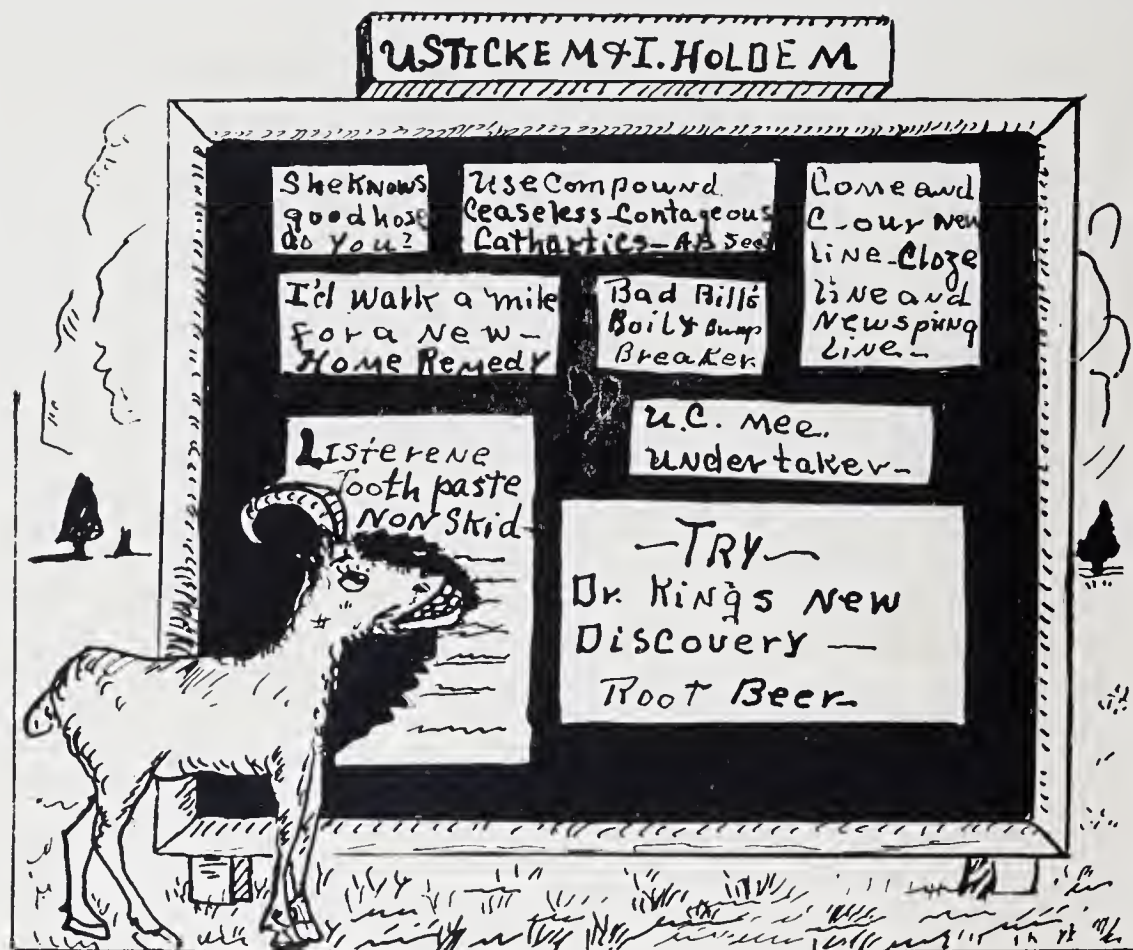 USTICKEM & I. HOLDEM
She Knows
good hose
do you?
Use Compound
Ceaseless-Contageous
Cathartics-
Come and
C-our New
Line-Cloze
Line and
New spring
Line-
I'd walk a mile
For a New-
Home Remedy
Bad Bill's
Boil & Bump
Breaker.
U.C. Mee.
Undertaker-
Listerene
Tooth paste
NON Skid-
-TRY-
Dr. King's New
Discovery -
Root Beer-